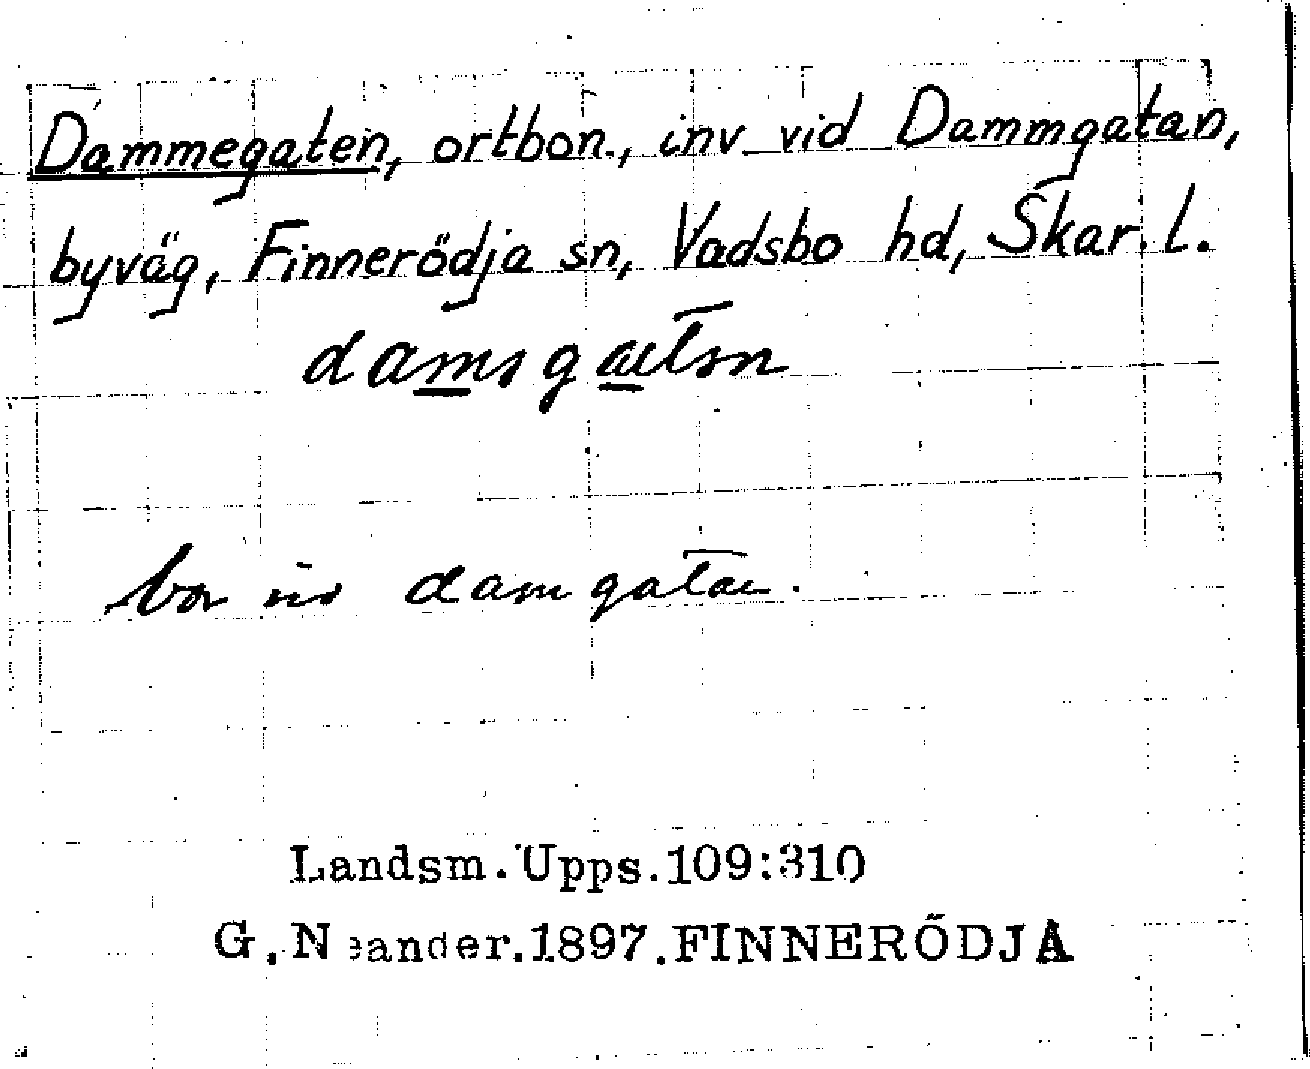 Dammegaten, ortbon., inv vid Dammgatan,
byväg, Finnerödja sn, Vadsbo hd, Skar. l.
bor vid damgatan.
Landsm. Upps. 109:310
G. Neander. 1897. FINNERÖDJA